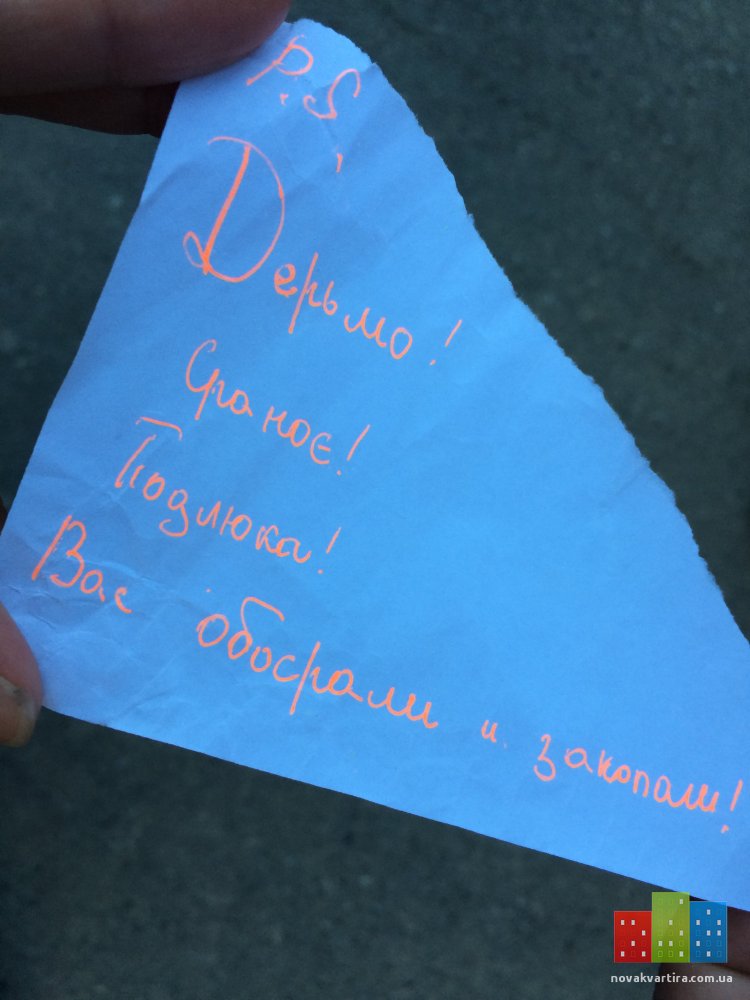 P.S,
Дерьмо!
Сраноє!
Подлюка!
Вас обосрали и закопали!
novakvartira.com.ua